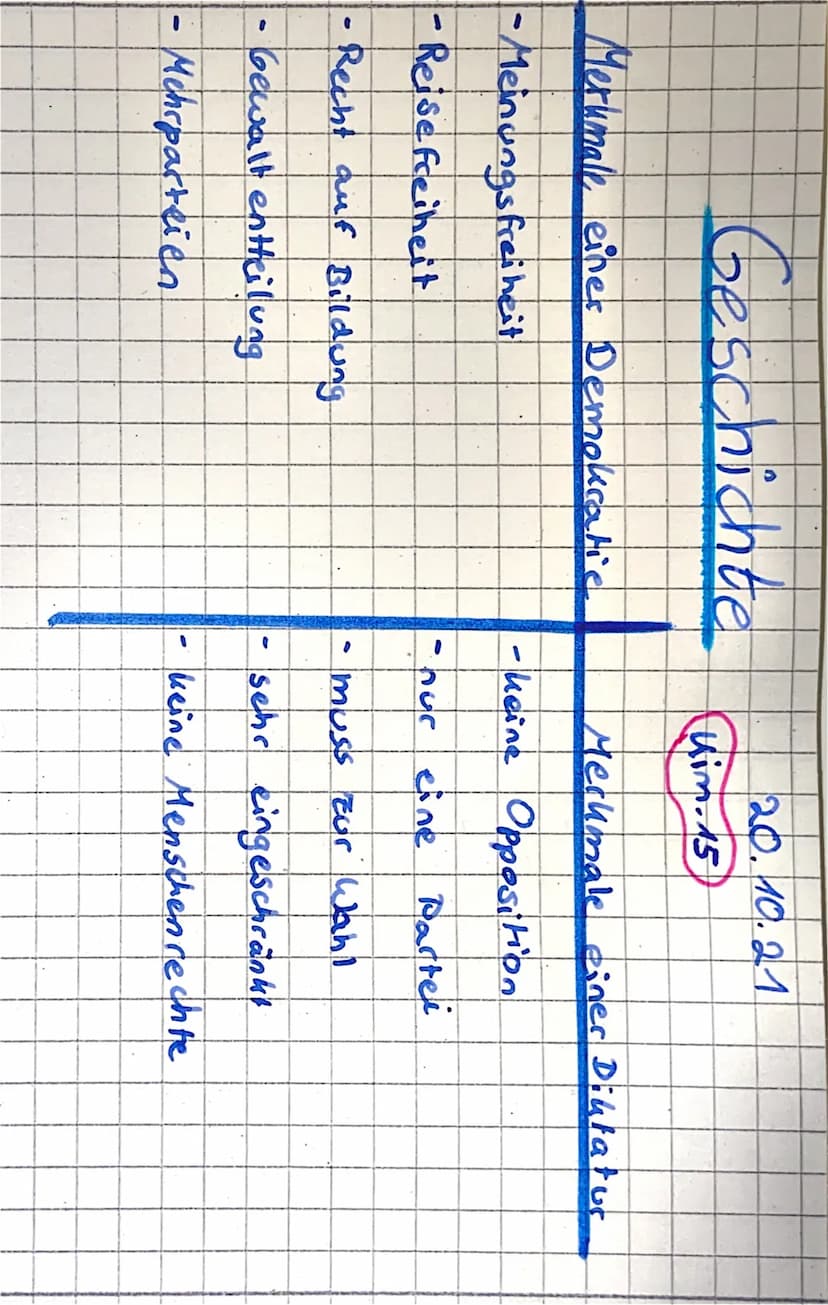 Geschichte
20.10.21
15
Merkmale einer Demokratie
- Meinungsfreiheit
- Reisefreiheit
- Recht auf Bildung
- Gewaltentteilung
- Mehrparteien
Merkmale einer Diktatur
- keine Opposition
- nur eine Partei
- muss zur Wahl
- sehr eingeschränkt
- keine Menschenrechte